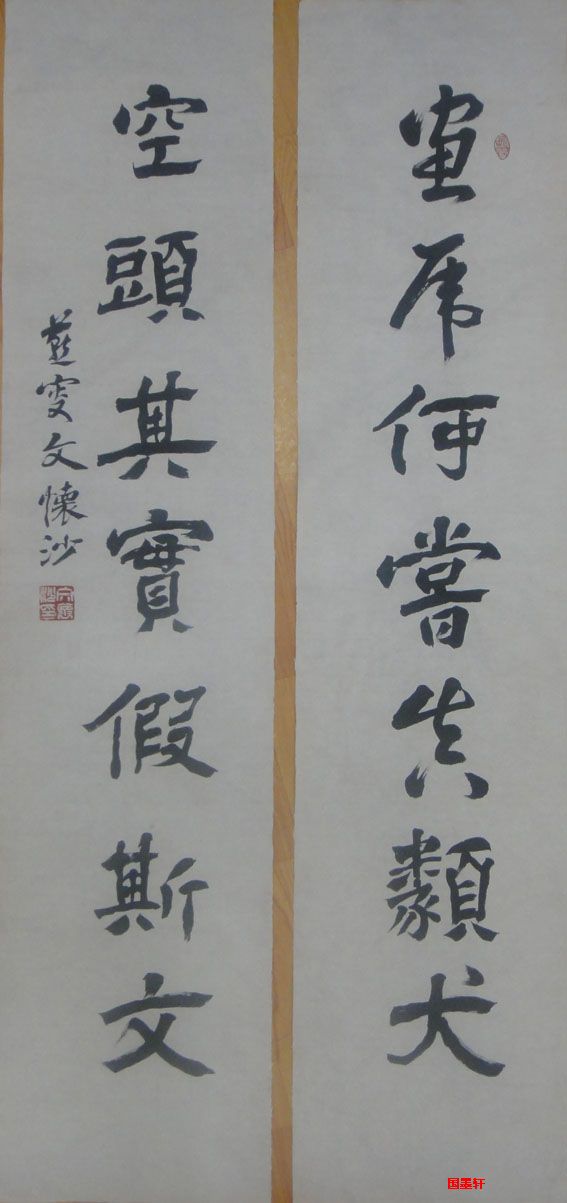 畫虎何嘗真類犬
空頭其實假斯文
燕叟文懷沙
国墨轩